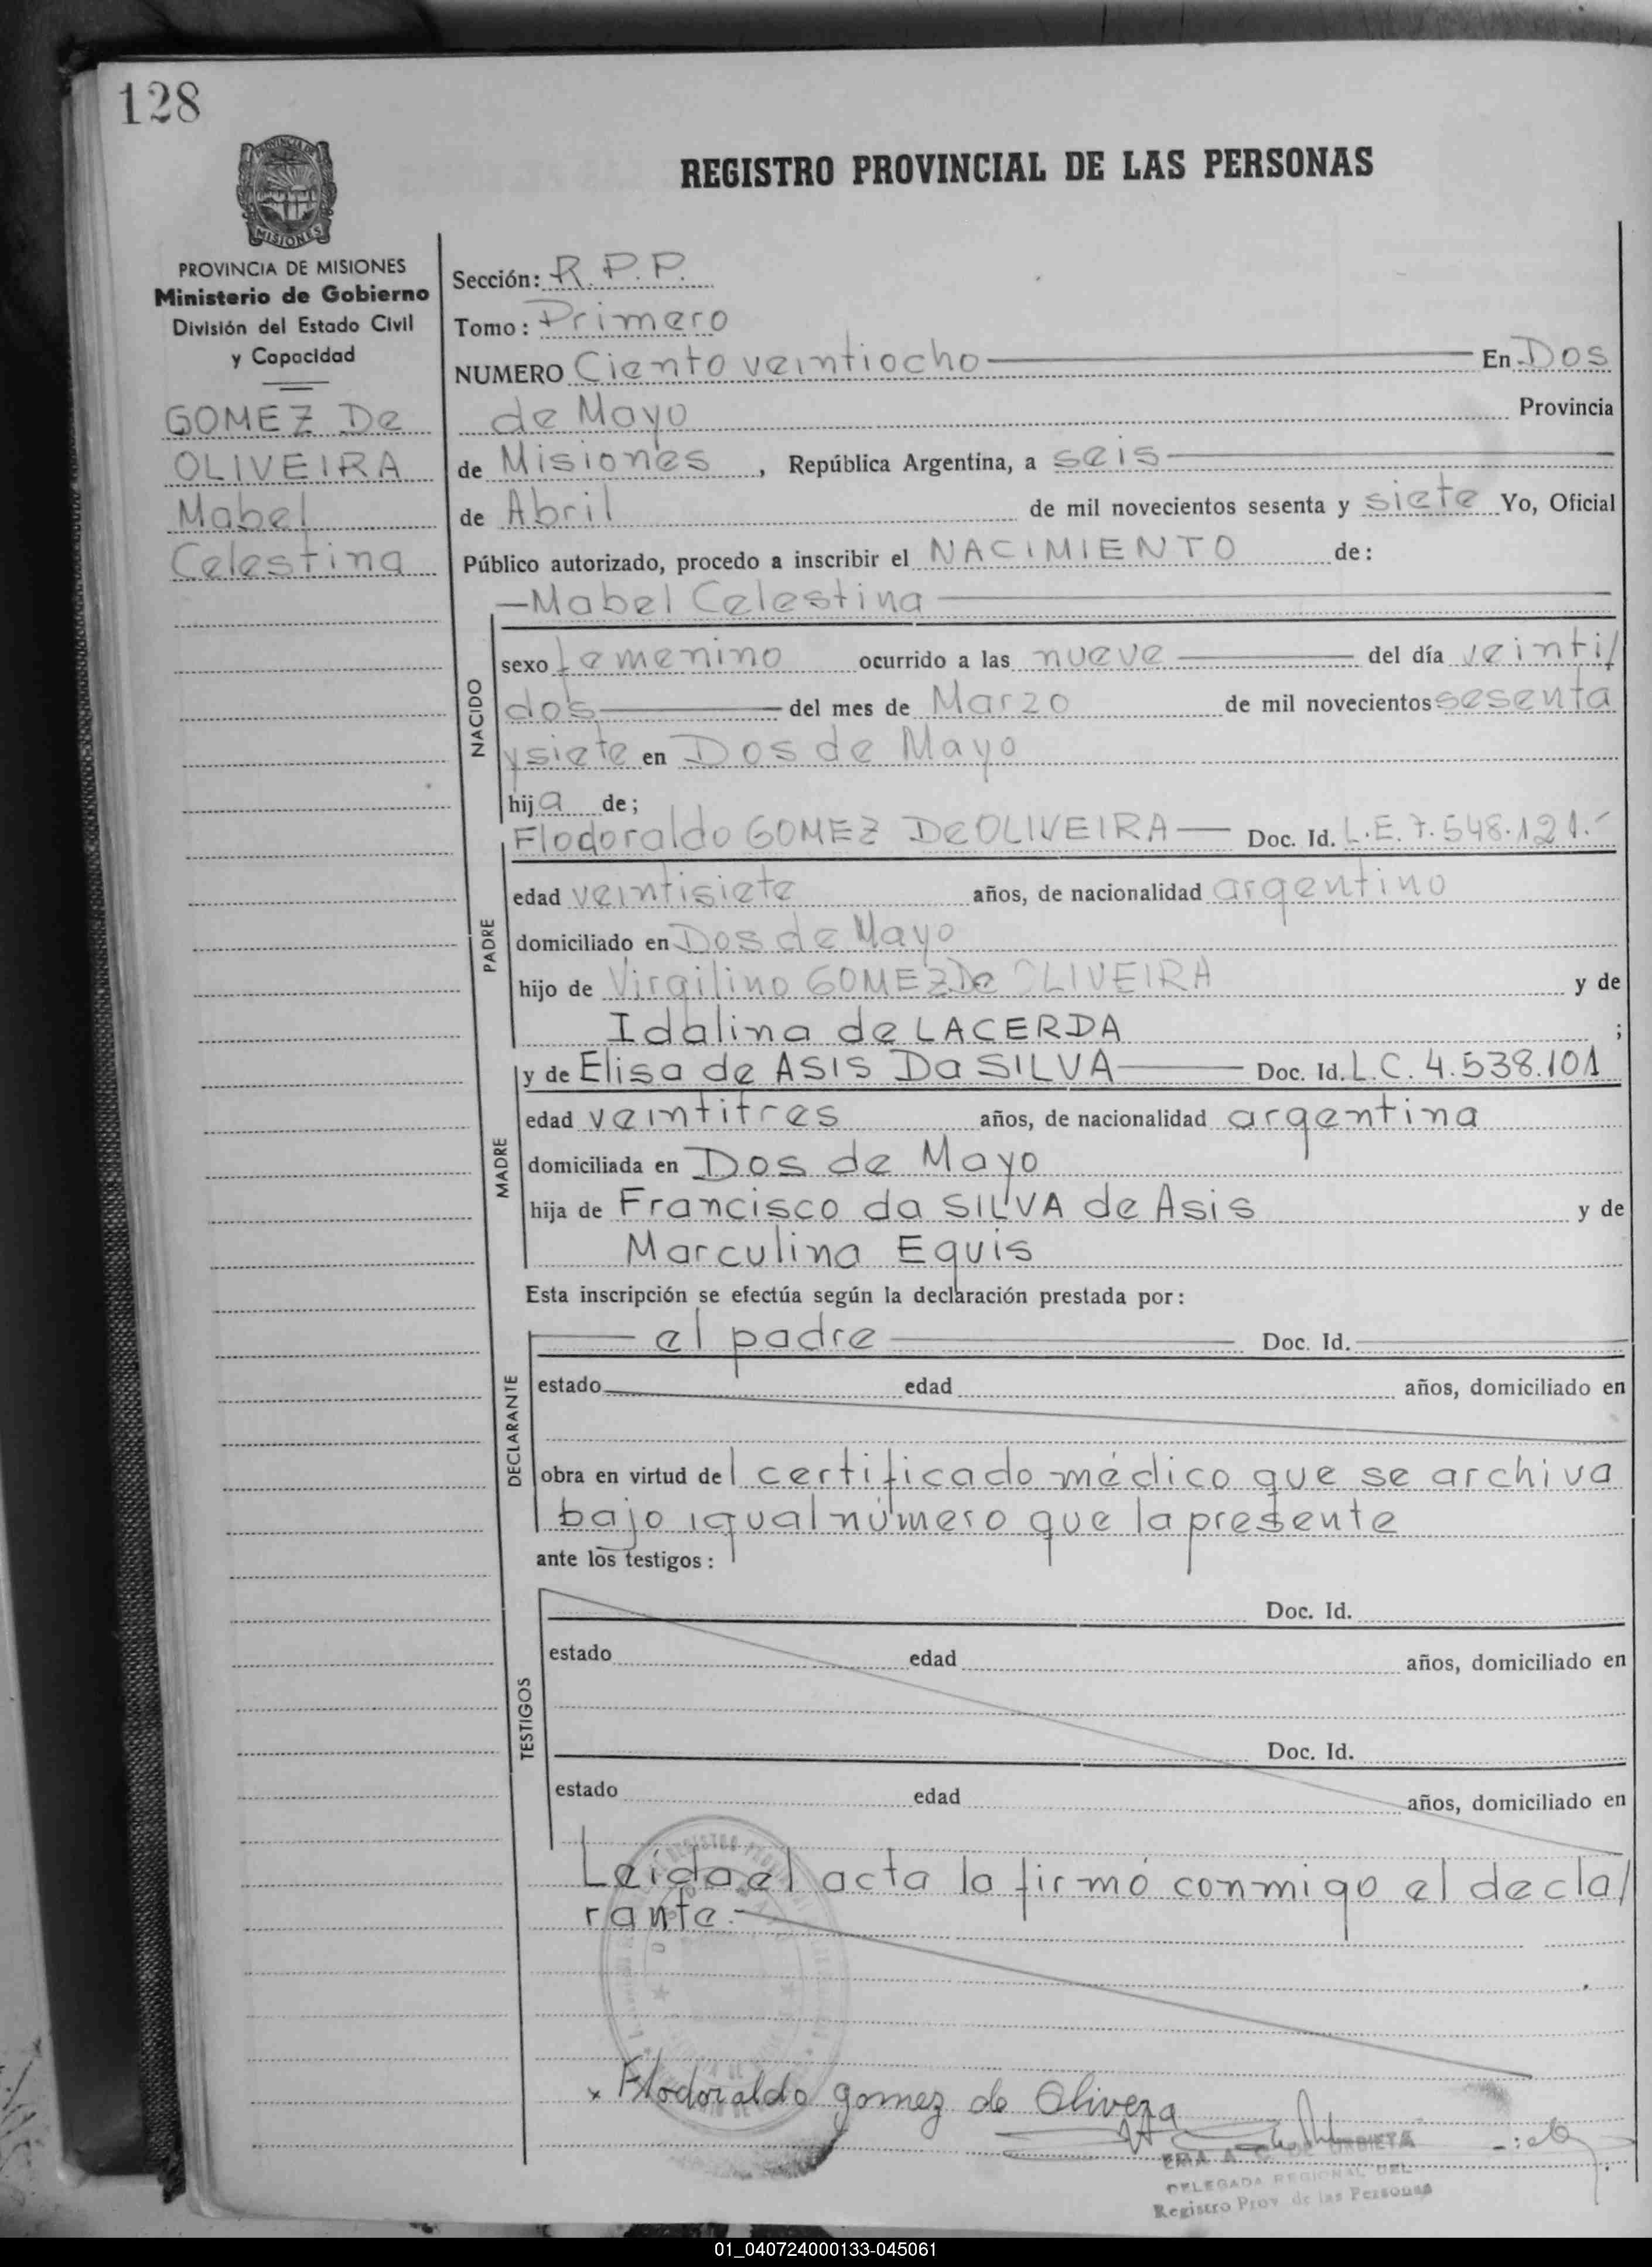 128
PROVINCIA DE
MISIONES
REGISTRO PROVINCIAL DE LAS PERSONAS
PROVINCIA DE MISIONES
Ministerio de Gobierno
División del Estado Civil
y Capacidad
GOMEZ De
OLIVEIRA
Mabel
Celestina
Sección: R.P.P.
Tomo: Primero
NUMERO Ciento veintiocho En Dos
de Mayo Provincia
de Misiones, República Argentina, a seis
de Abril de mil novecientos sesenta y siete Yo, Oficial
Público autorizado, procedo a inscribir el NACIMIENTO de:
—Mabel Celestina
NACIDO
sexo femenino ocurrido a las nueve del día veinti/
dos del mes de Marzo de mil novecientos sesenta
ysiete en Dos de Mayo
hija de;
PADRE
Flodoraldo GOMEZ DeOLIVEIRA Doc. Id. L.E. 7.548.121.-
edad veintisiete años, de nacionalidad argentino
domiciliado en Dos de Mayo
hijo de Virgilino GOMEZ De OLIVEIRA y de
Idalina de LACERDA ;
MADRE
y de Elisa de ASIS Da SILVA Doc. Id. L.C. 4.538.101
edad veintitres años, de nacionalidad argentina
domiciliada en Dos de Mayo
hija de Francisco da SILVA de Asis y de
Marculina Equis
Esta inscripción se efectúa según la declaración prestada por:
DECLARANTE
el padre Doc. Id.
estado edad años, domiciliado en
obra en virtud del certificado médico que se archiva
bajo igual número que la presente
ante los testigos:
TESTIGOS
Doc. Id.
estado edad años, domiciliado en
Doc. Id.
estado edad años, domiciliado en
Leída el acta la firmó conmigo el decla/
rante.-
x Flodoraldo gomez de Olivera
EMA A
DELEGADA REGIONAL DEL
Registro Prov. de las Personas
01_040724000133-045061